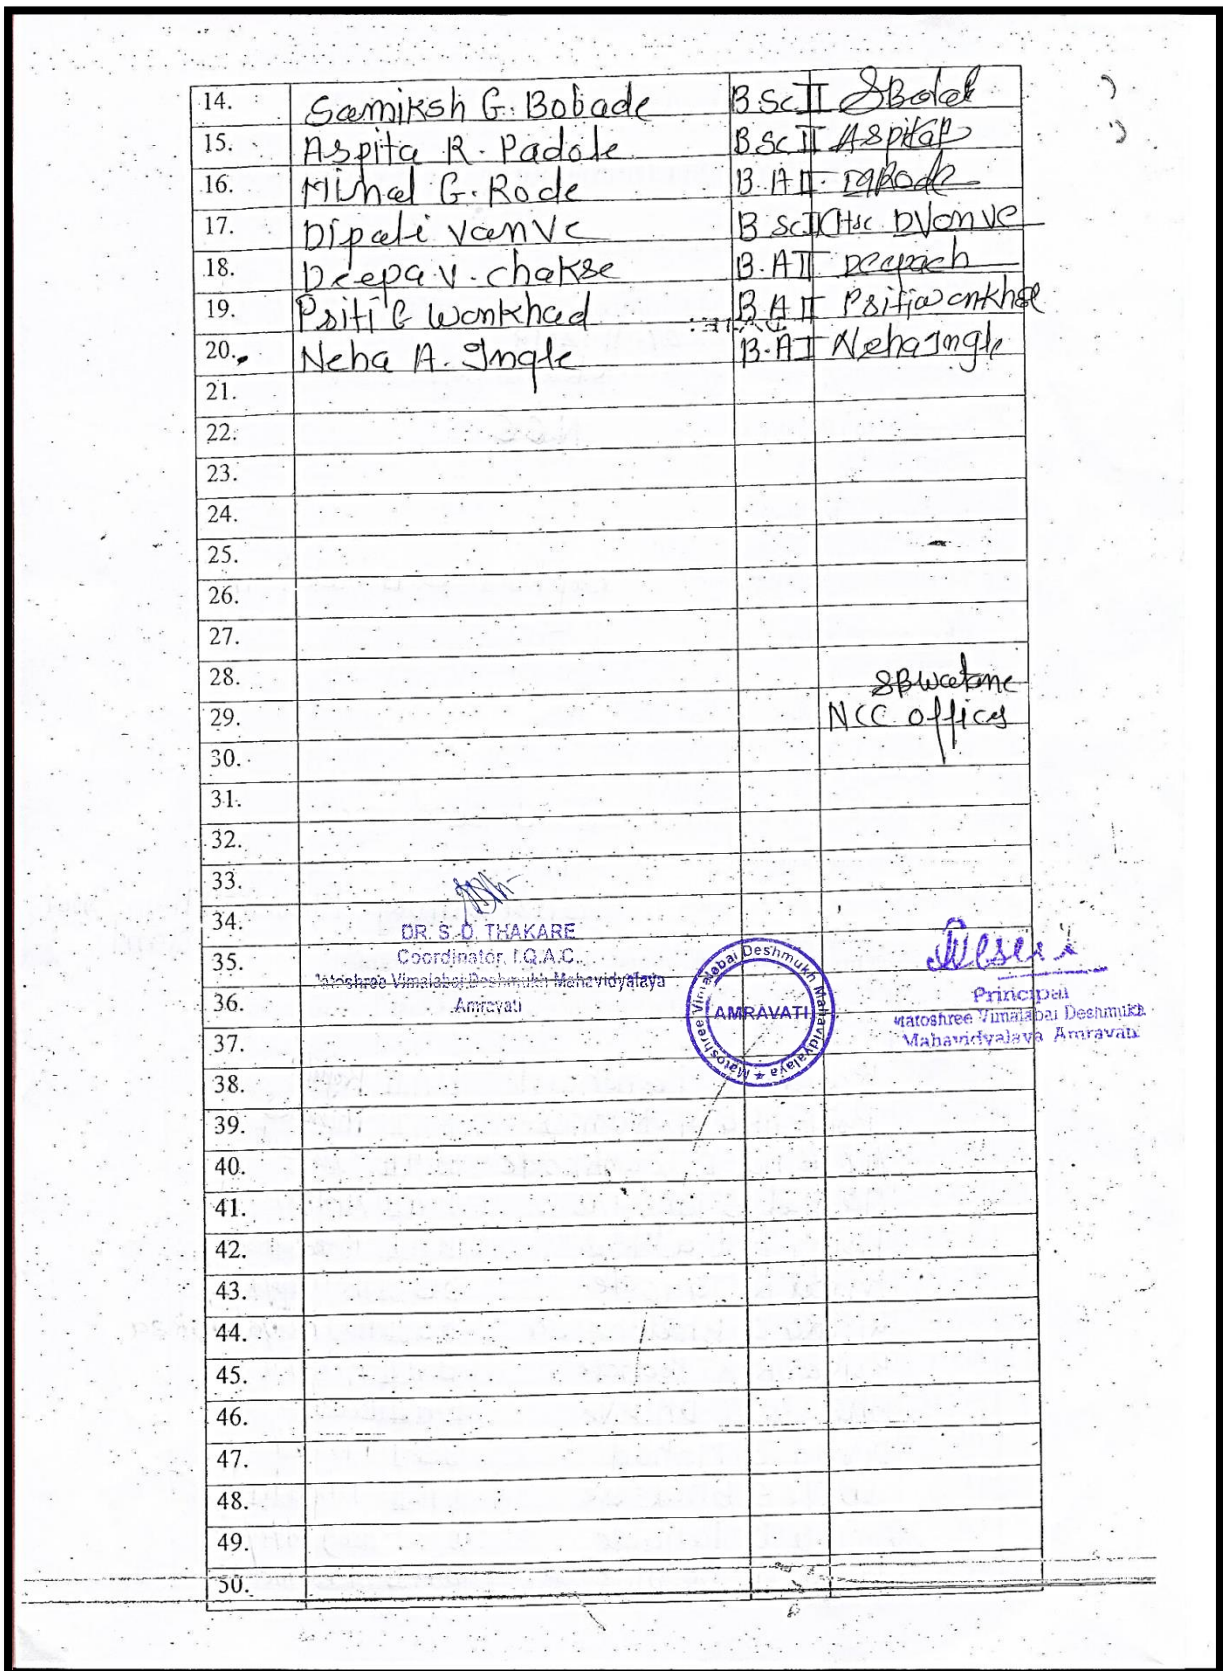 14. Samiksh G. Bobade B.Sc II SBobade
15. Aspita R. Padole B.Sc II AspitaP
16. Minal G. Rode B.A II
17. Dipali Vanve B Sc II (Hsc DVanve
18. Deepa V. Chakse B.A II Deepach
19. Psiti G Wankhad B.A II Psitiwankhde
20. Neha A. Ingle B.A I Neha Ingle
21.
22.
23.
24.
25.
26.
27.
28. SBWatane
29. NCC officer
30.
31.
32.
33.
34. DR. S. D. THAKARE
35. Coordinator, I.Q.A.C.
Matoshree Vimalabai Deshmukh Mahavidyalaya
36. Amravati
Matoshree Vimalabai Deshmukh Mahavidyalaya
AMRAVATI
Principal
Matoshree Vimalabai Deshmukh
Mahavidyalaya Amravati
37.
38.
39.
40.
41.
42.
43.
44.
45.
46.
47.
48.
49.
50.